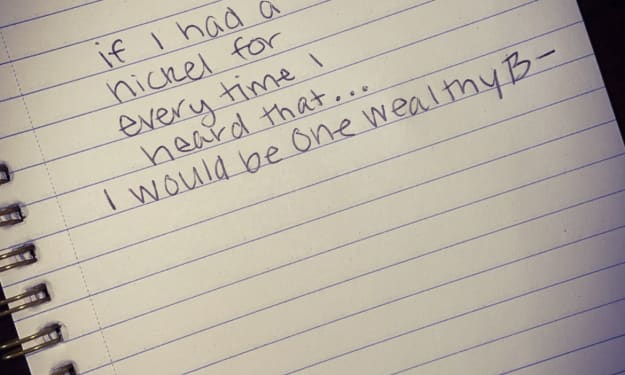 if I had a
nickel for
every time I
heard that...
I would be one wealthy B-